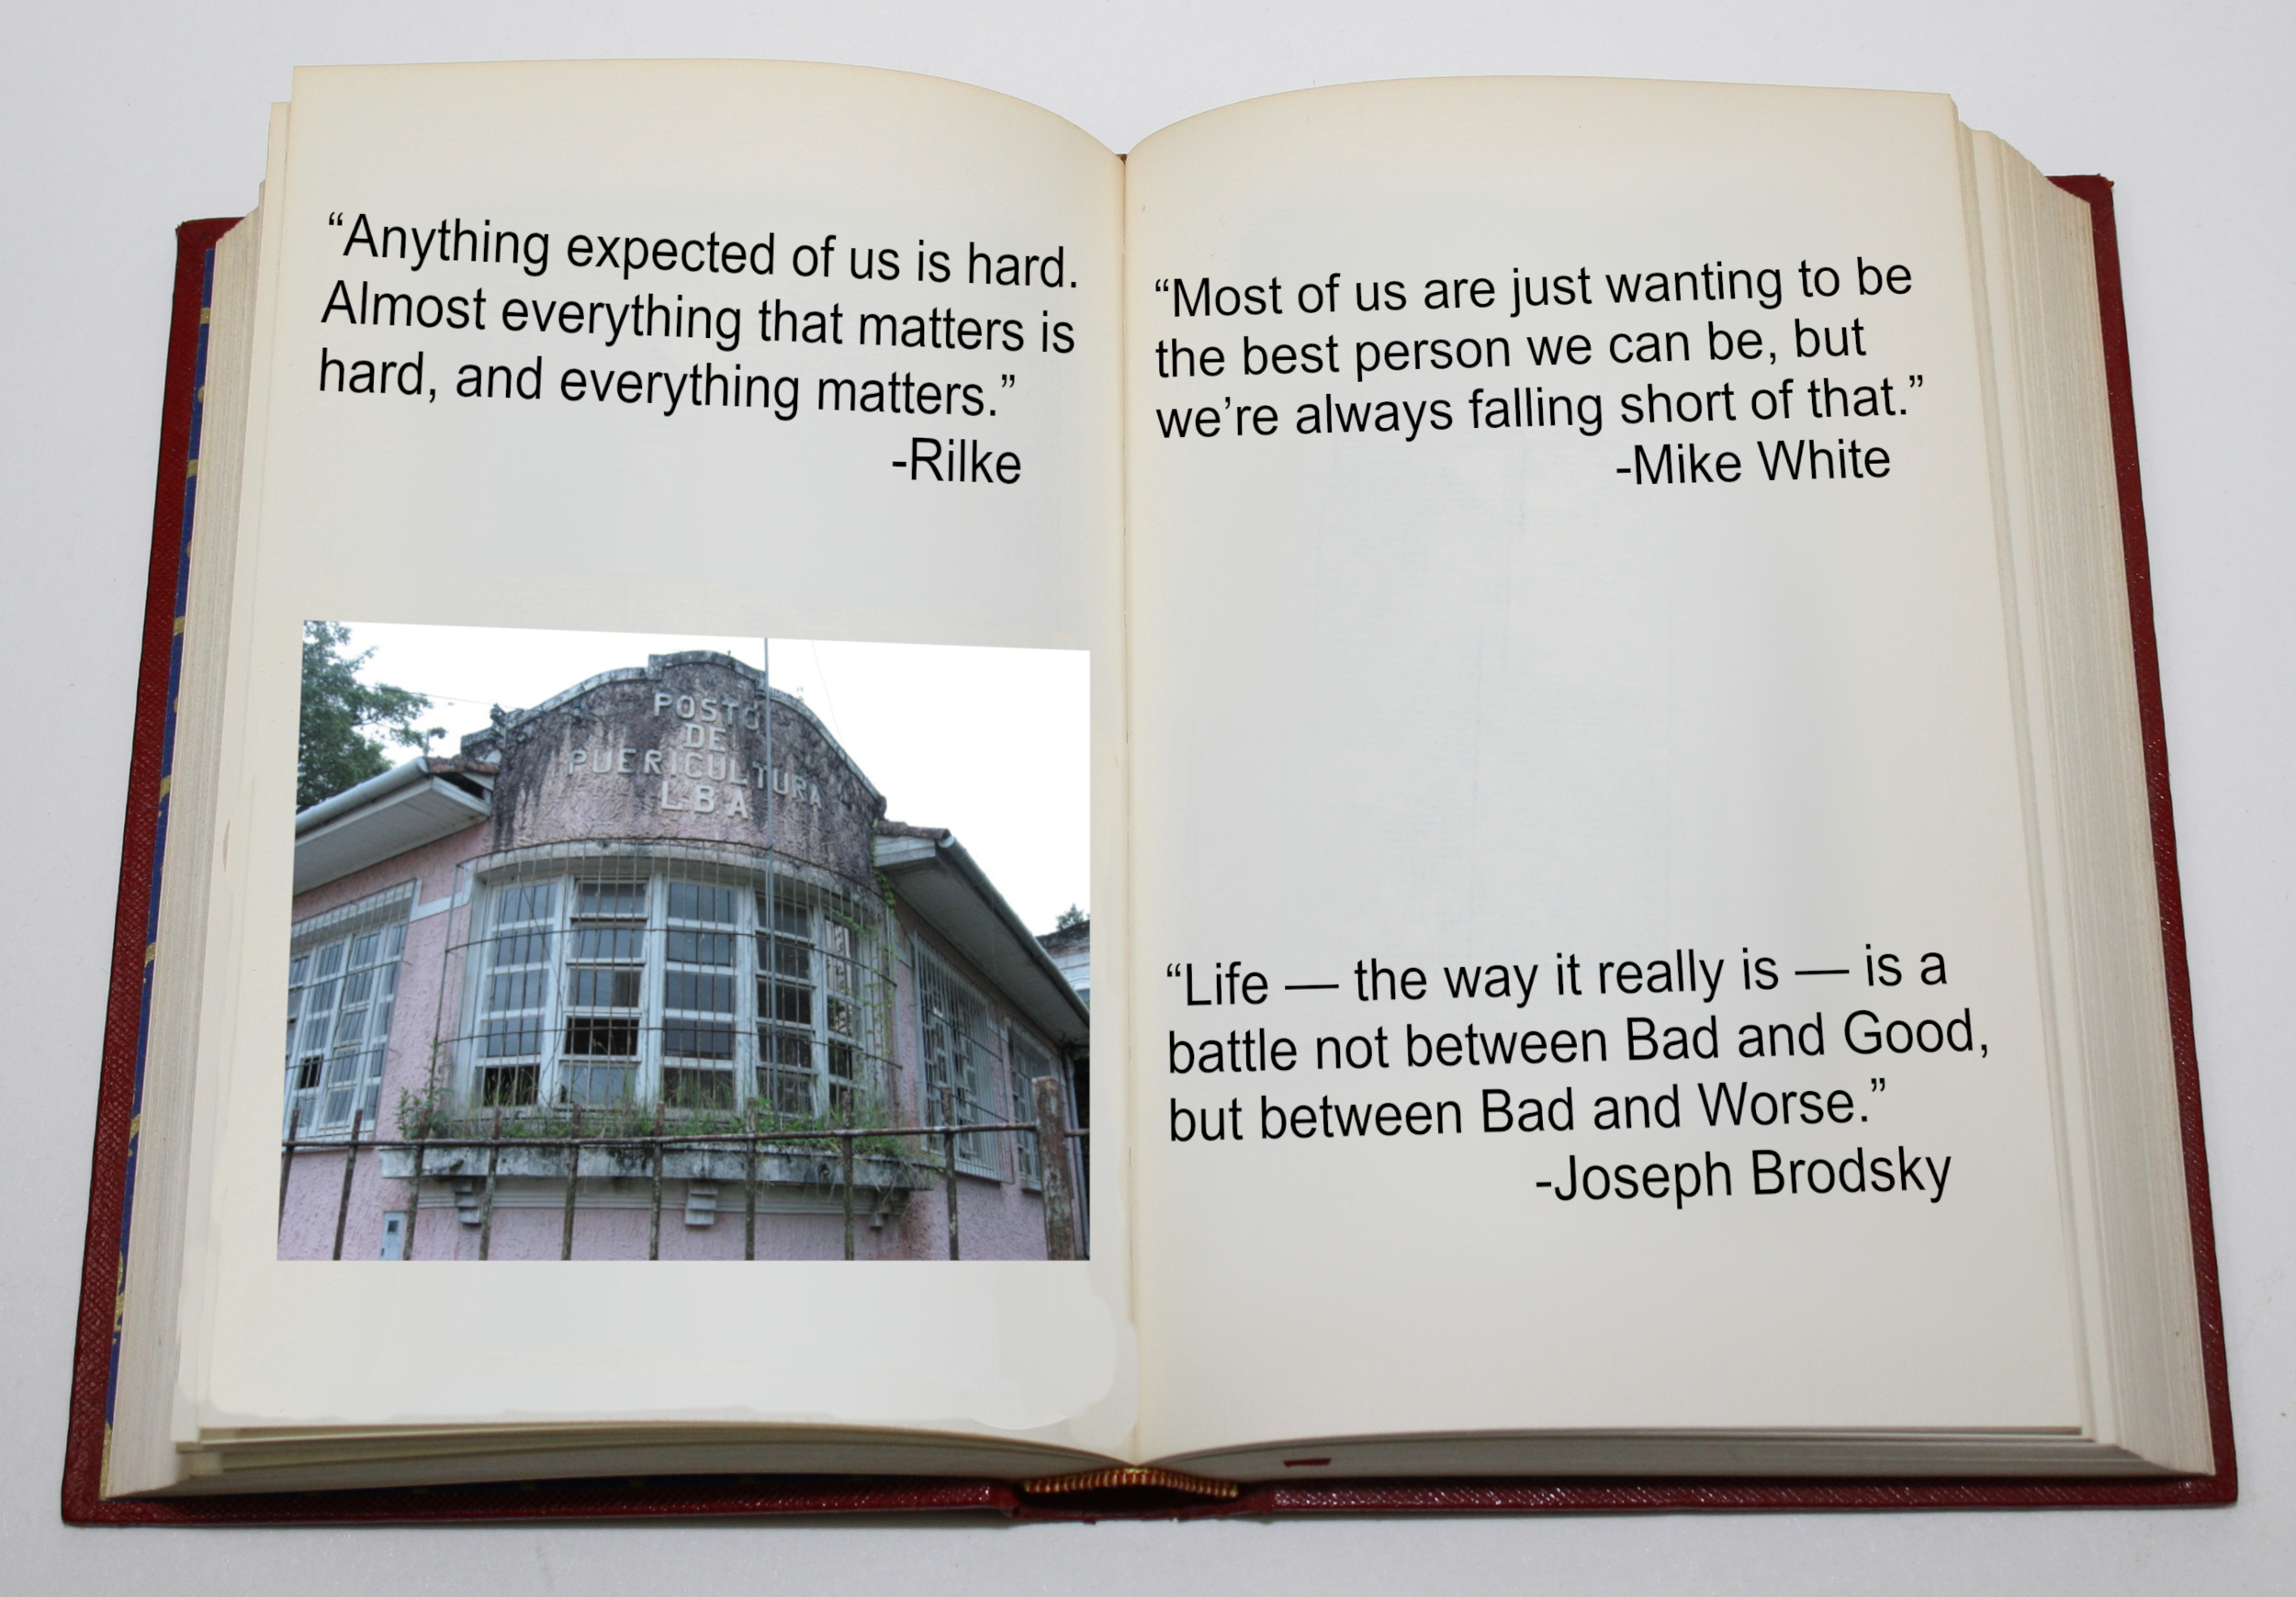 “Anything expected of us is hard.
Almost everything that matters is
hard, and everything matters.”
-Rilke
POSTO
DE
PUERICULTURA
LBA
“Most of us are just wanting to be
the best person we can be, but
we’re always falling short of that.”
-Mike White
“Life — the way it really is — is a
battle not between Bad and Good,
but between Bad and Worse.”
-Joseph Brodsky